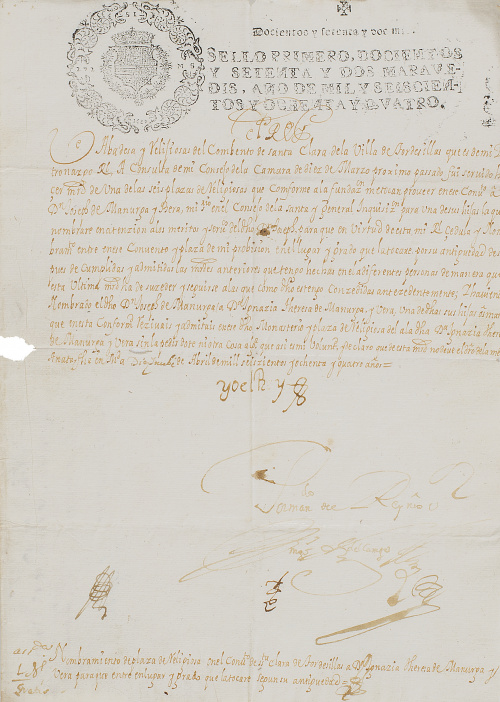 Docientos y setenta y dos mrs.
SELLO PRIMERO, DOCIENTOS
Y SETENTA Y DOS MARAVE-
DIS, AÑO DE MIL Y SEISCIEN-
TOS Y OCHENTA Y QVATRO.
El Rey
Abadesa y Religiosas del Combento de santa Clara de la Villa de Tordesillas que es de mi
tronazgo Rl. A Consulta de mi Consejo de la Camara de diez de Marzo proximo pasado fui servido
cer mrd de Una de las seis plazas de Religiosas que Conforme a la fundazn me tocan proveer en ese Convto a
Dn Joseph de Manurga y Vera, mi en el Consejo de la santa y General Inquisizn para Una de sus hijas la que
nombrare en atenzion a los meritos y para que en Virtud de esta mi Rl Zedula y Nom
bramto entre en ese Convento y plaza de mi probision en el lugar y grado que la tocare por su antiguedad des
pues de Cumplidas y admitidas las mrdes anteriores que tengo hechas en diferentes personas de manera que
esta Ultima mrd ha de suzeder y seguirse a las que como dho es tengo Conzedidas antezedentemente; Y haviendo
Nombrado el dho Dn Joseph de Manurga a Da Ignazia Theresa de Manurga, y Vera, Una de dhas sus hijas
que en esta Conformd rezivais y admitais en ese dho Monasterio y plaza de Religiosa del a la dha Da Ignazia Theresa
de Manurga y Vera sin la pedir dote ni otra Cosa alga que asi es mi Volund y declaro que de esta mrd no deve el dro de la media
Anata, fha en Md a de Abril de mil seiscientos y ochenta y quatro años=
yo el Rey
Nombramiento de plaza de Religiosa en el Convto de Sta Clara de Tordesillas a Da Ignazia Theresa de Manurga y
Vera para que entre en lugar y grado que la tocare segun su antiguedad=